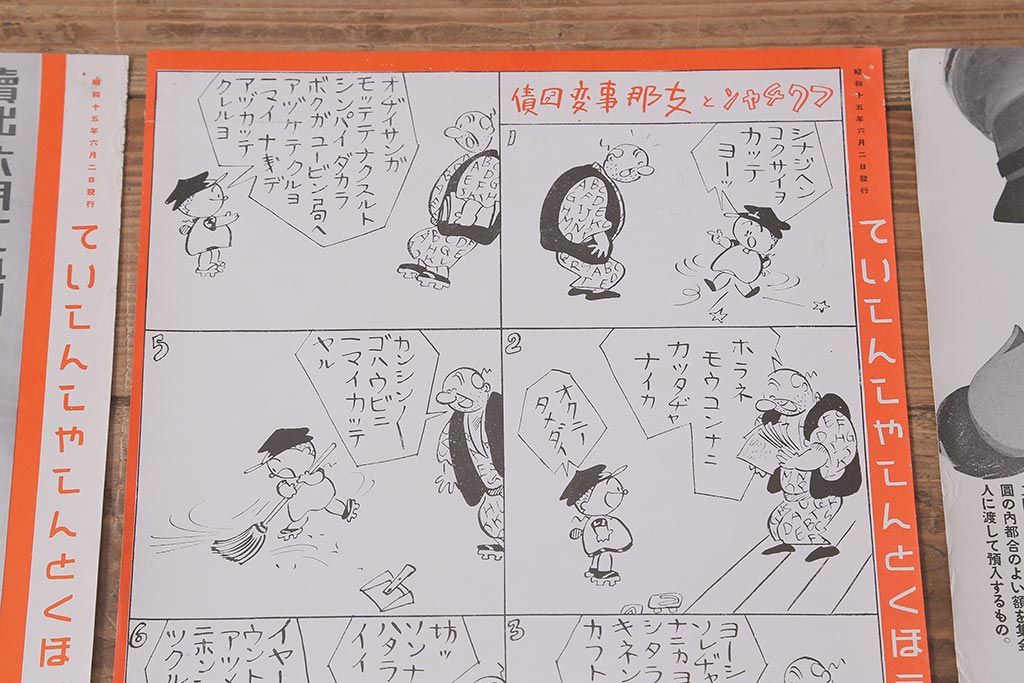 昭和十五年六月二日發行
ていしんしやしんとくほ
フクチャンと支那事変国債
1
シナジヘン
コクサイヲ
カッテ
ヨーッ
2
ホラネ
モウコンナニ
カツタヂャ
ナイカ
オクニノ
タメダイ
3
ヨーシ
ソレヂャ
ナニカヨ
シタラ
キネン
カフト
オヂイサンガ
モッテテ ナクスルト
シンパイダカラ
ボクガユービン局ヘ
アヅケテクルヨ
ニマイ
アヅカッテ
クレルヨ
5
カンシンノー
ゴハウビニ
ニマイカッテ
ヤル
6
坊ッ
ソンナ
ハタラ
イイ
イヤー
ウント
アツメ
ニホン
ツクル
圓の內都合のよい額を集金
人に渡して預入するもの。
昭和十五年六月二日發行
ていしんしやしんとくほ
賣出